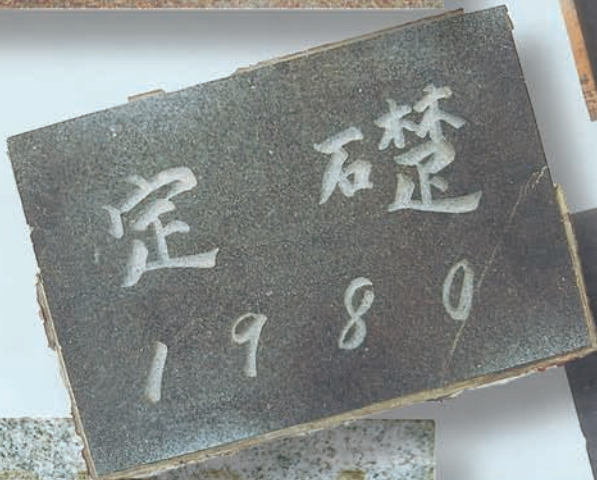 定礎
1980